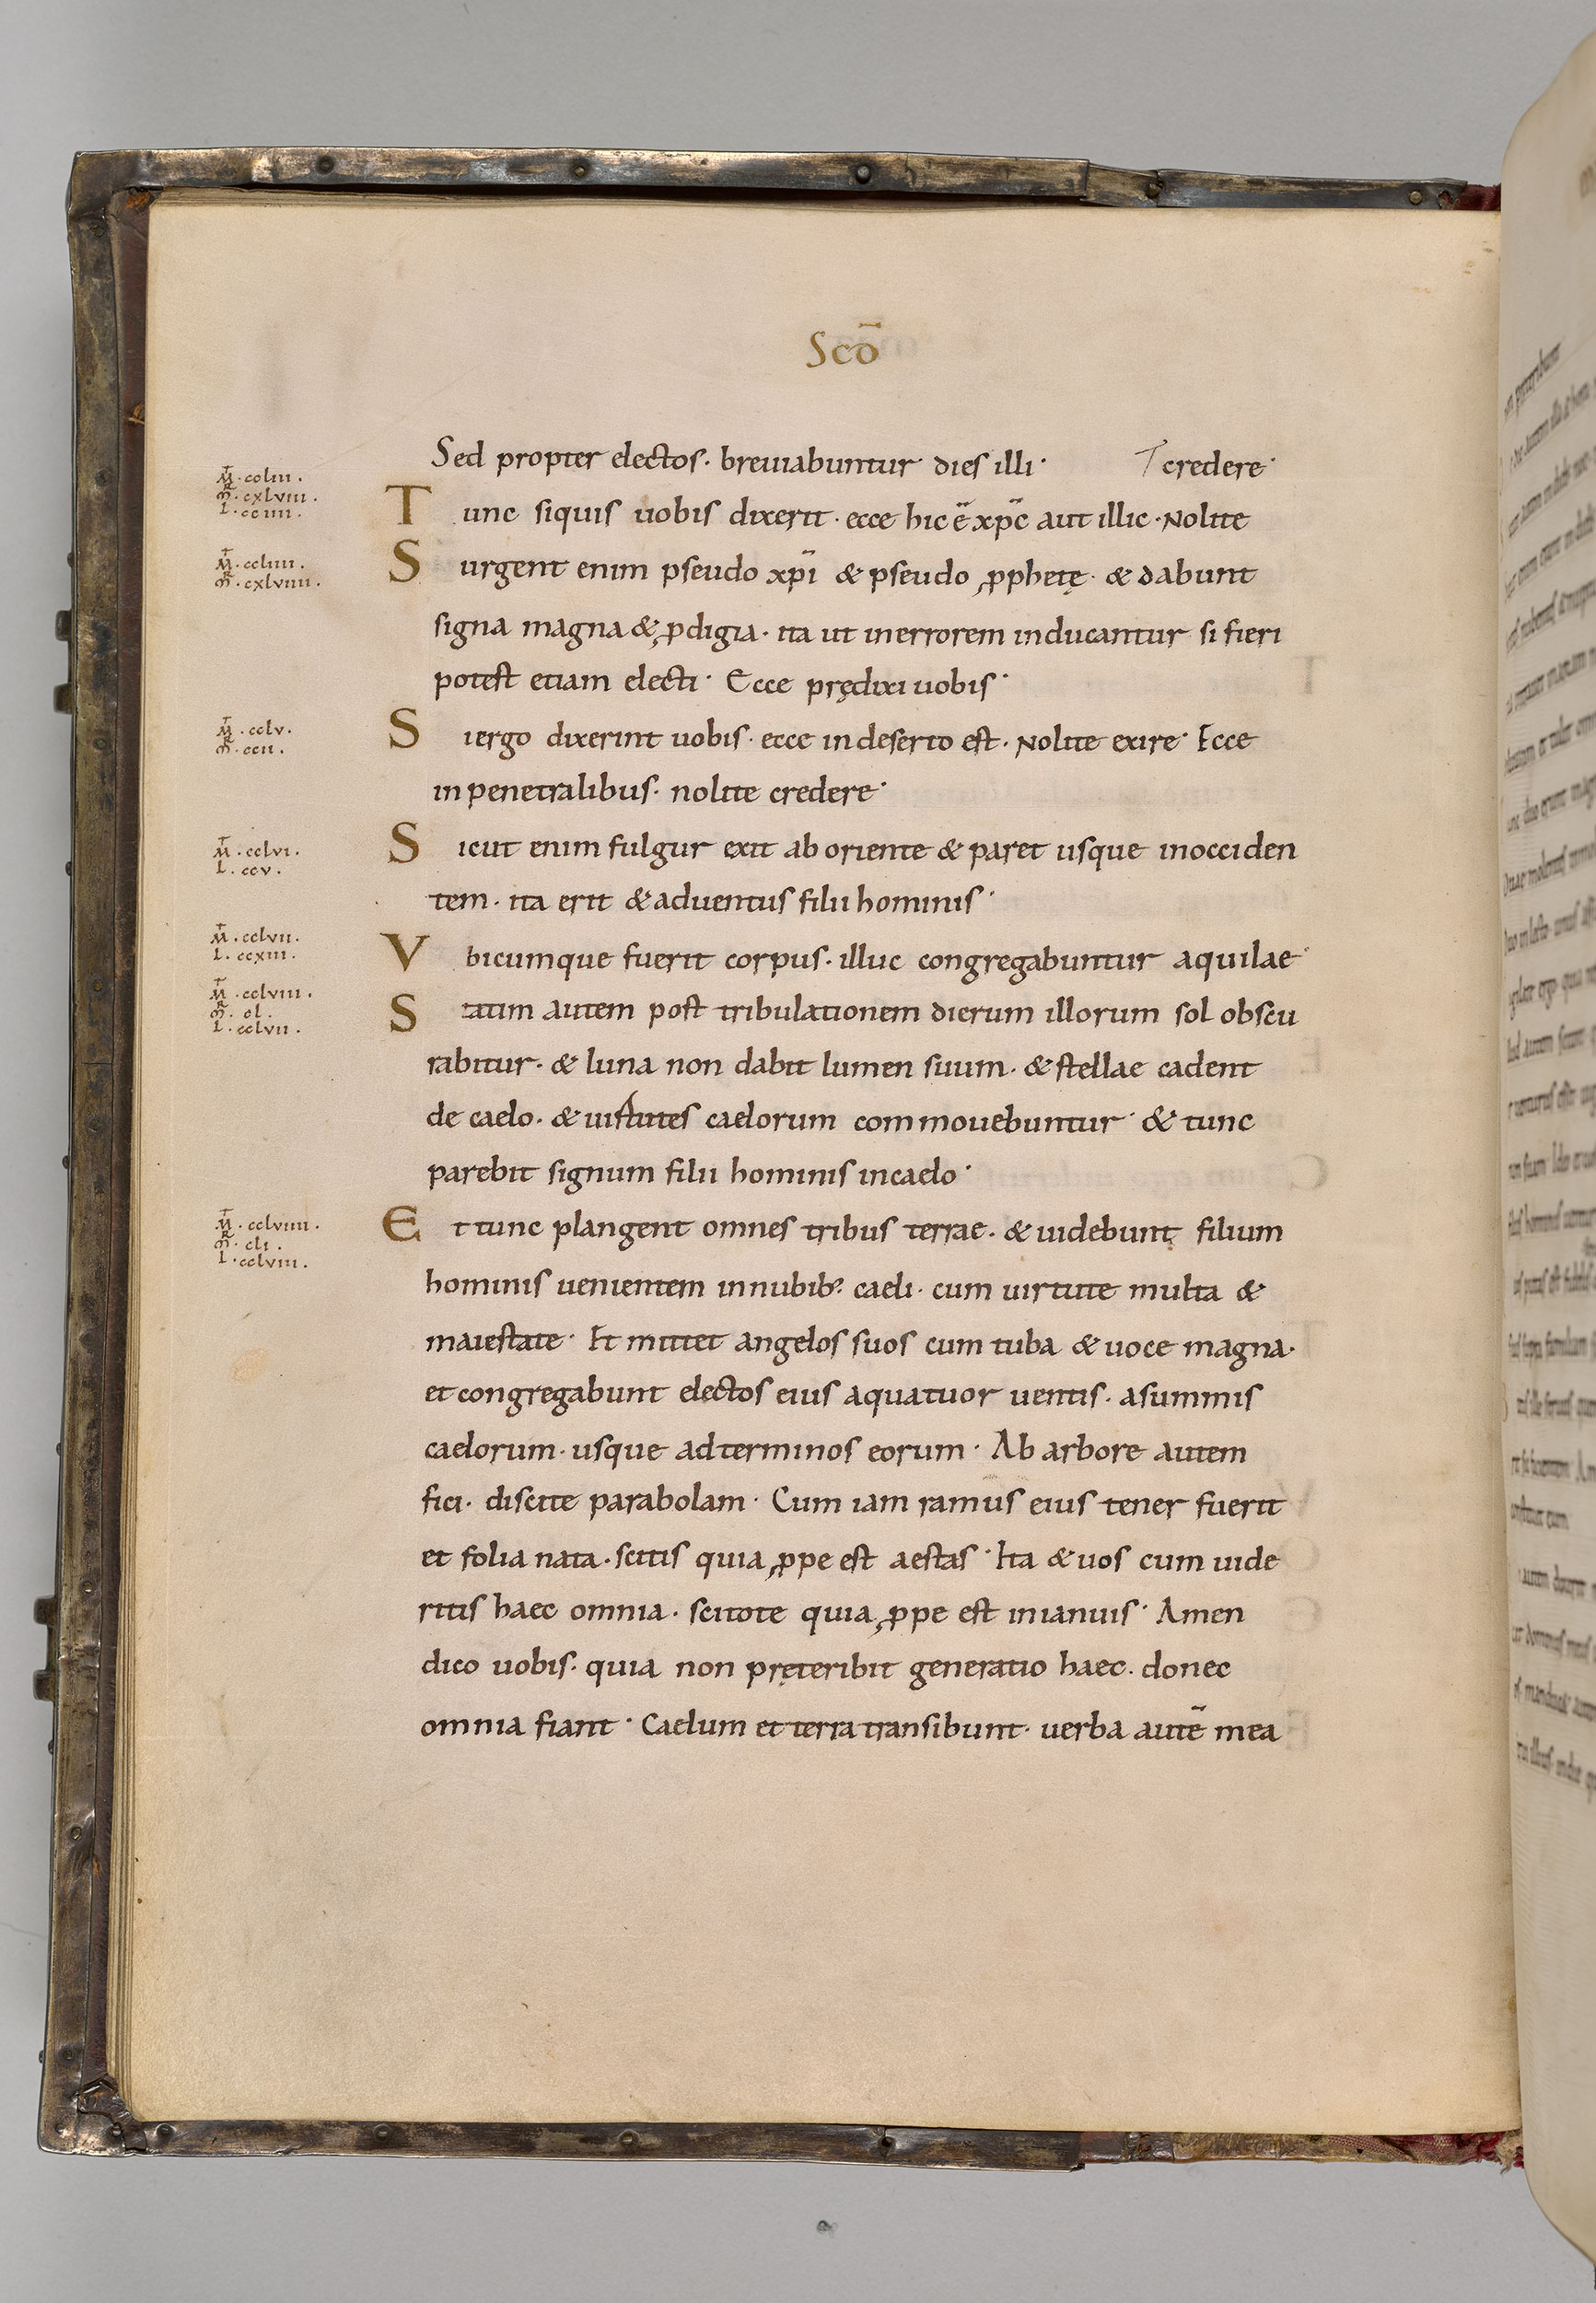 Scō
Sed propter electos· breuiabuntur dies illi· credere·
M̄·ccliii·
MR·cxlviii·
L·cciiii·
Tunc siquis uobis dixerit· ecce hic ē xp̄c aut illic· Nolite
M̄·ccliiii·
MR·cxlviiii·
Surgent enim pseudo xp̄i & pseudo ꝓphetę· & dabunt
signa magna & ꝓdigia· ita ut inerrorem inducantur si fieri
potest etiam electi· Ecce prędixi uobis·
M̄·cclv·
MR·ccii·
Siergo dixerint uobis· ecce indeserto est· Nolite exire· Ecce
inpenetralibus· nolite credere·
M̄·cclvi·
L·ccv·
Sicut enim fulgur exit ab oriente & paret usque inocciden
tem· ita erit & aduentus filii hominis·
M̄·cclvii·
L·ccxiii·
Vbicumque fuerit corpus· illuc congregabuntur aquilae·
M̄·cclviii·
MR·cl·
L·cclvii·
Statim autem post tribulationem dierum illorum sol obscu
rabitur· & luna non dabit lumen suum· & stellae cadent
de caelo· & uirtutes caelorum commouebuntur· & tunc
parebit signum filii hominis incaelo·
M̄·cclviiii·
MR·cli·
L·cclviii·
Et tunc plangent omnes tribus terrae· & uidebunt filium
hominis uenientem innubib; caeli· cum uirtute multa &
maiestate· Et mittet angelos suos cum tuba & uoce magna·
et congregabunt electos eius aquatuor uentis· asummis
caelorum· usque adterminos eorum· Ab arbore autem
fici· discite parabolam· Cum iam ramus eius tener fuerit
et folia nata· scitis quia ꝓpe est aestas· Ita & uos cum uide
ritis haec omnia· scitote quia ꝓpe est inianuis· Amen
dico uobis· quia non pręteribit generatio haec· donec
omnia fiant· Caelum et terra transibunt· uerba autē mea